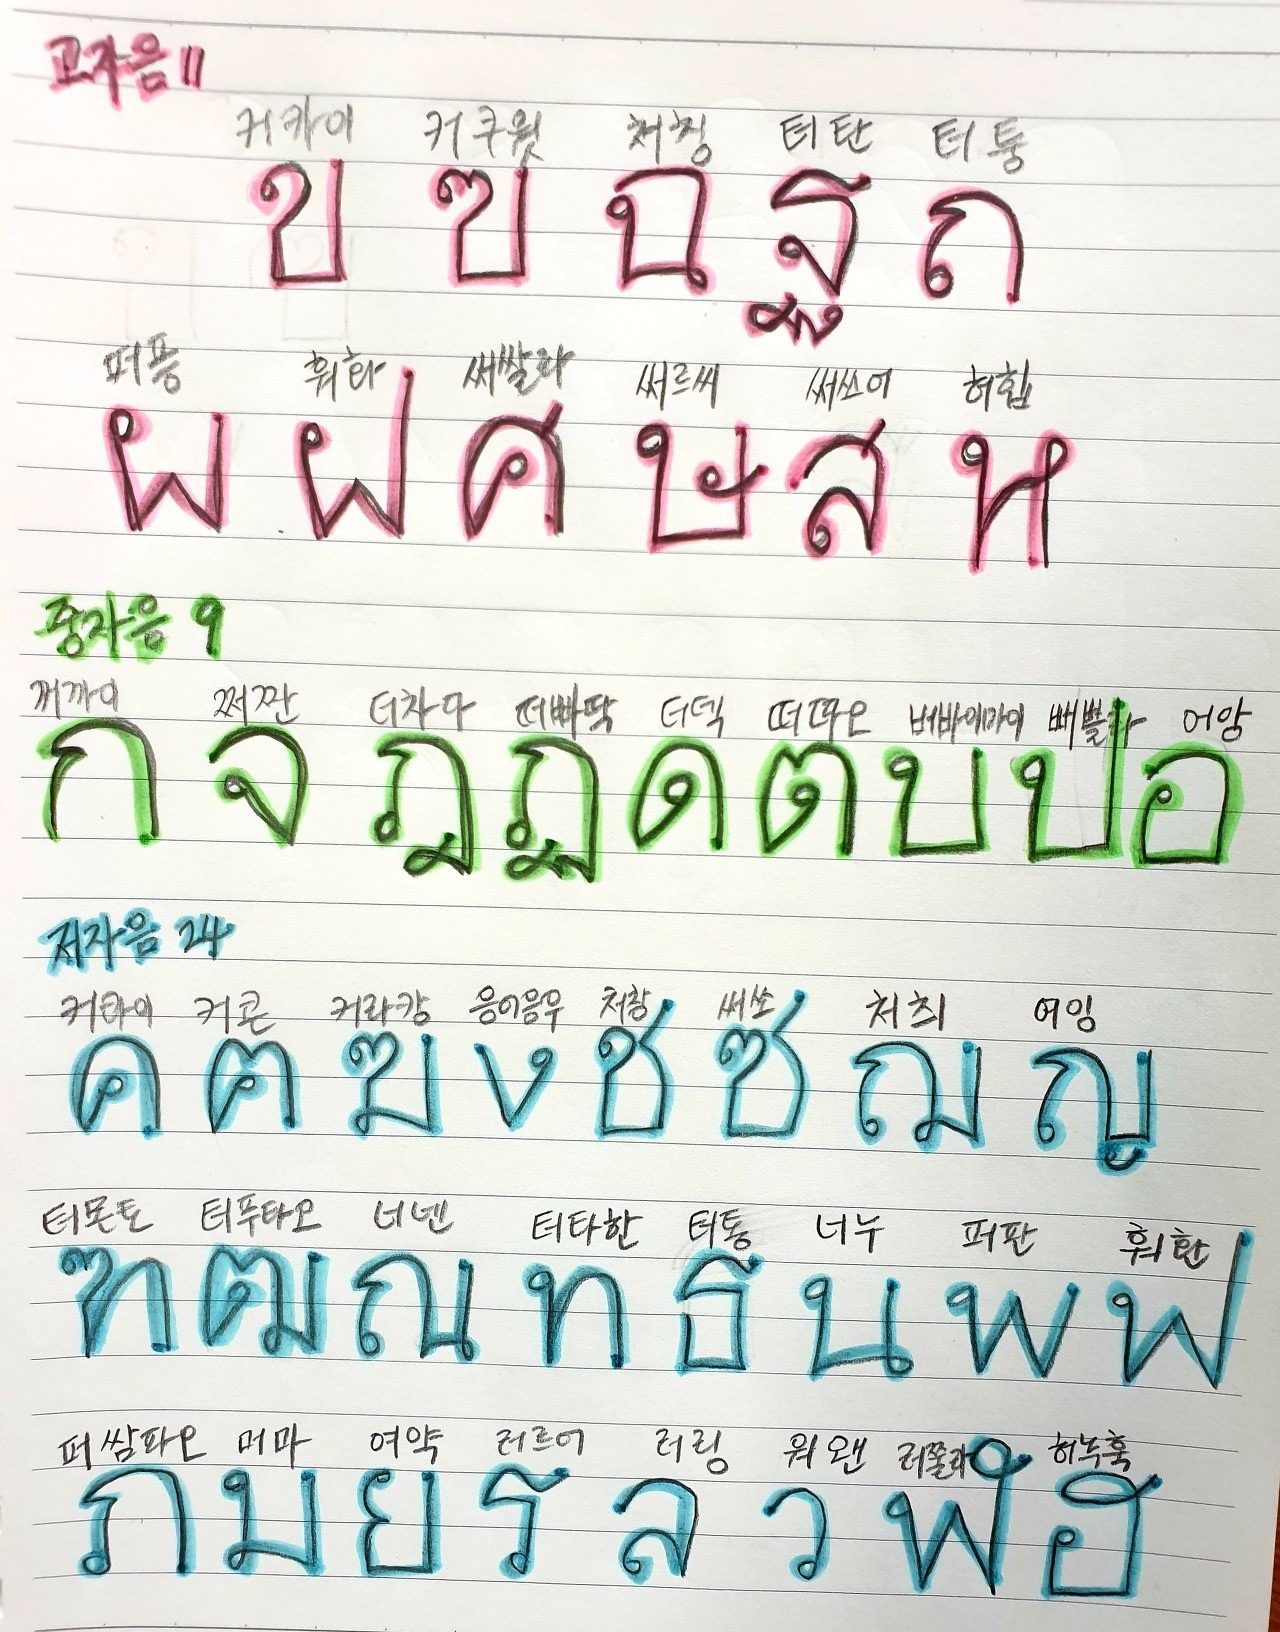 고자음 11
커카이 커쿠월 처칭 터탄 터퉁
ข ฃ ฉ ฐ ถ
퍼풍 훠화 써쌀라 써르씨 써쓰어 허힙
ผ ฝ ศ ษ ส ห
중자음 9
꺼까이 쩌짠 더차다 떠빠딱 더덱 떠따오 버바이마이 뻐쁠라 어앙
ก จ ฎ ฏ ด ต บ ป อ
저자음 24
커콰이 커콘 커라캉 응어응우 처창 써쏘 처최 여잉
ค ฅ ฆ ง ช ซ ฌ ญ
터몬토 터푸타오 너넨 터타한 터통 너누 퍼판 훠환
ฑ ฒ ณ ท ธ น พ ฟ
퍼쌈파오 머마 여약 러르어 러링 워왠 러쭐라 허녹훅
ภ ม ย ร ล ว ฬ ฮ